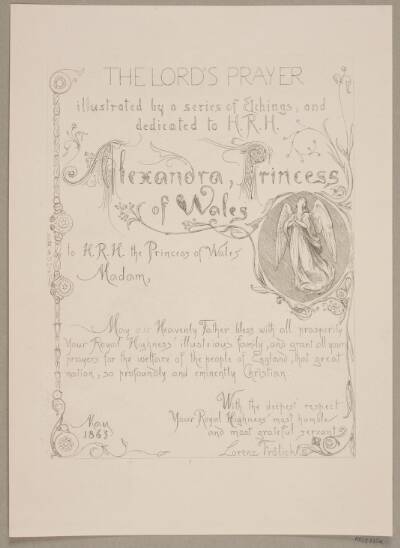 THE LORD'S PRAYER
illustrated by a series of Etchings, and
dedicated to H.R.H.
Alexandra, Princess
of Wales
to H.R.H. the Princess of Wales
Madam,
May our Heavenly Father bless with all prosperity
Your Royal Highness' illustrious family, and grant all your
prayers for the welfare of the people of England, that great
nation, so profoundly and eminently Christian
With the deepest respect
Your Royal Highness' most humble
and most grateful servant
Lorenz Frölich
May
1863